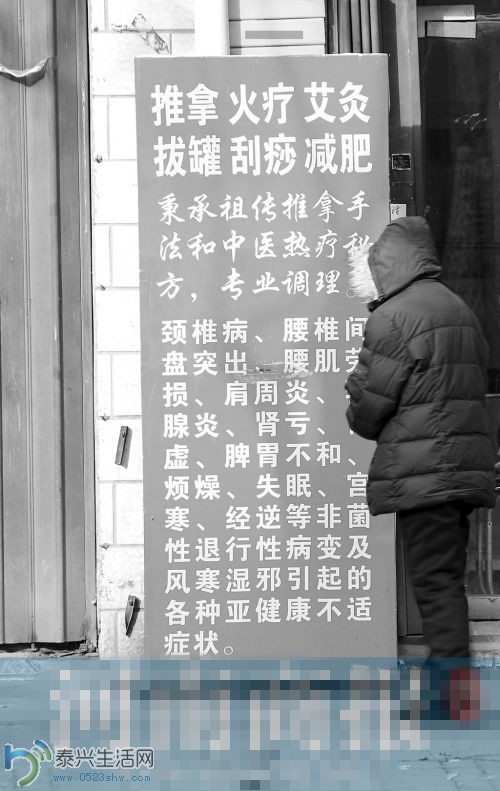 推拿 火疗 艾灸
拔罐 刮痧 减肥
秉承祖传推拿手
法和中医热疗秘
方，专业调理。
颈椎病、腰椎间
盘突出、腰肌劳
损、肩周炎、
腺炎、肾亏、
虚、脾胃不和、
烦燥、失眠、宫
寒、经逆等非菌
性退行性病变及
风寒湿邪引起的
各种亚健康不适
症状。
泰兴生活网
www.0523shw.com